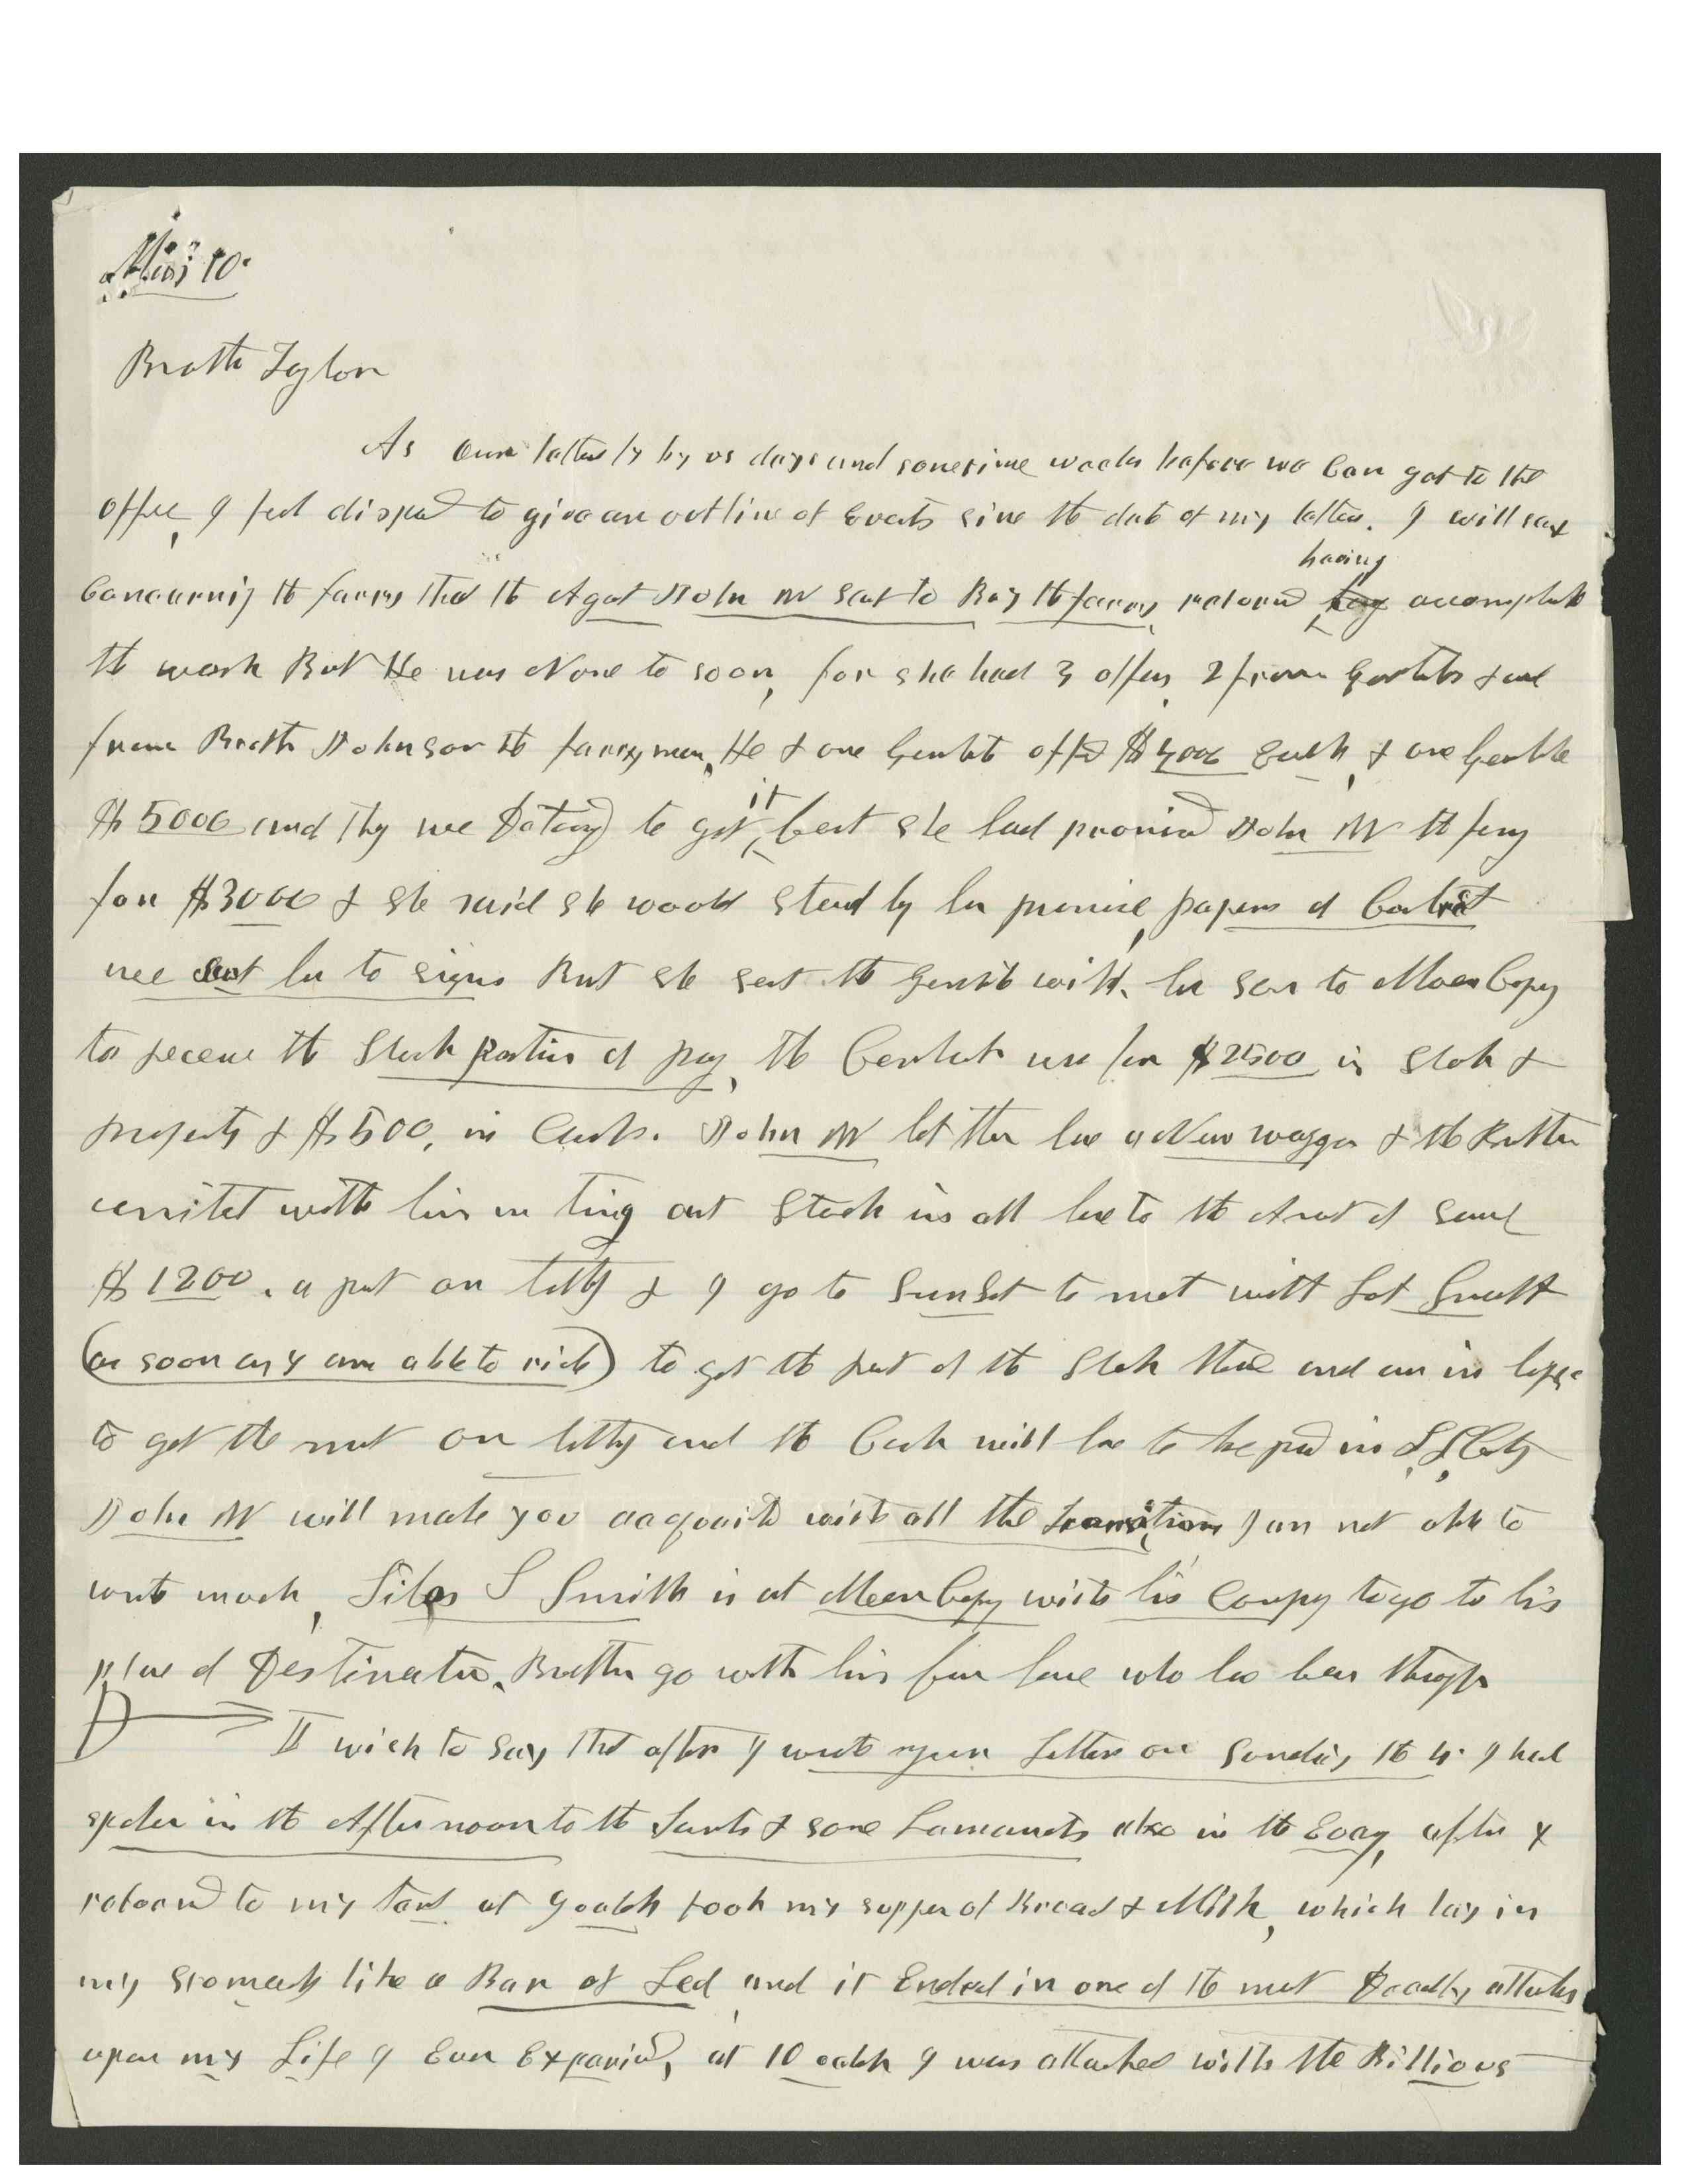 May 10.
Brothr Taylor
As our letters ly by us days and sometime weeks before we can get to the
office, I feel disposed to give an outline of Events since the date of my letter. I will say
having
Concerning the farry that the Agent John W sent to Buy the farry, returnd accomplishd
the work But He was None to soon, for she had 3 offers, 2 from Gentiles & one
from Brothr Johnson the farryman, He & one Gentile offd $4000 Each, & one Gentile
$5000 and they were Detemd to get it, but she had promised John W the fery
for $3000 & she said she would stand by her promise, papers of Contrat
wee sent her to sign But she sent the Gentile with her son to Moen Copy
to receive the Stock portion of pay, the Contract was for $2500 in Stock &
property & $500, in Cash. John W let them have a New waggon & the Brethren
assisted with him in turning out Stock in all here to the Amt of some
$1200. a part on tithing & I go to Sunset to meet with Lot Smith
(as soon as I am able to ride) to get the part of the Stock there and am in hopes
to get the most on tithing and the Cash will have to be paid in S L City
John W will make you acquaintd with all the transitions I am not able to
write much, Silas S Smith is at Moen Copy with his Compy to go to his
place of Destination, Brethren go with him from here who have been through
I wish to say that after I wrote your Letter on Sunday the 4. I had
spoken in the Afternoon to the Saints & some Lamanites also in the Eveng, after I
returnd to my tent at 9 oclok took my supper of Bread & Milk, which lay in
my stomach like a Bar of Led and it Ended in one of the most Deadly attacks
upon my Life I Ever Experiend, at 10 oclok I was attacked with the Billious